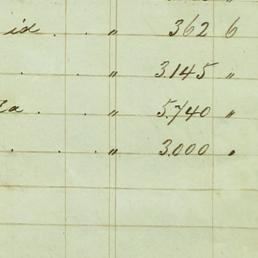 id . . " 362 6
. . " 3.145 "
a . . " 5.740 "
. . . " 3.000 "